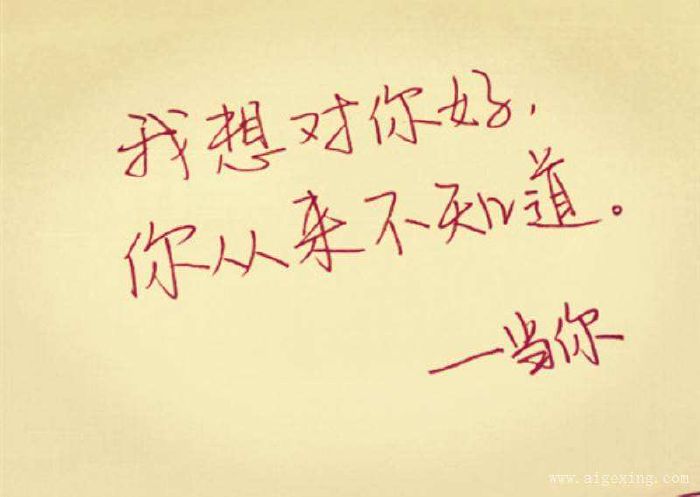 我想对你好,
你从来不知道。
—当你
www.aigexing.com